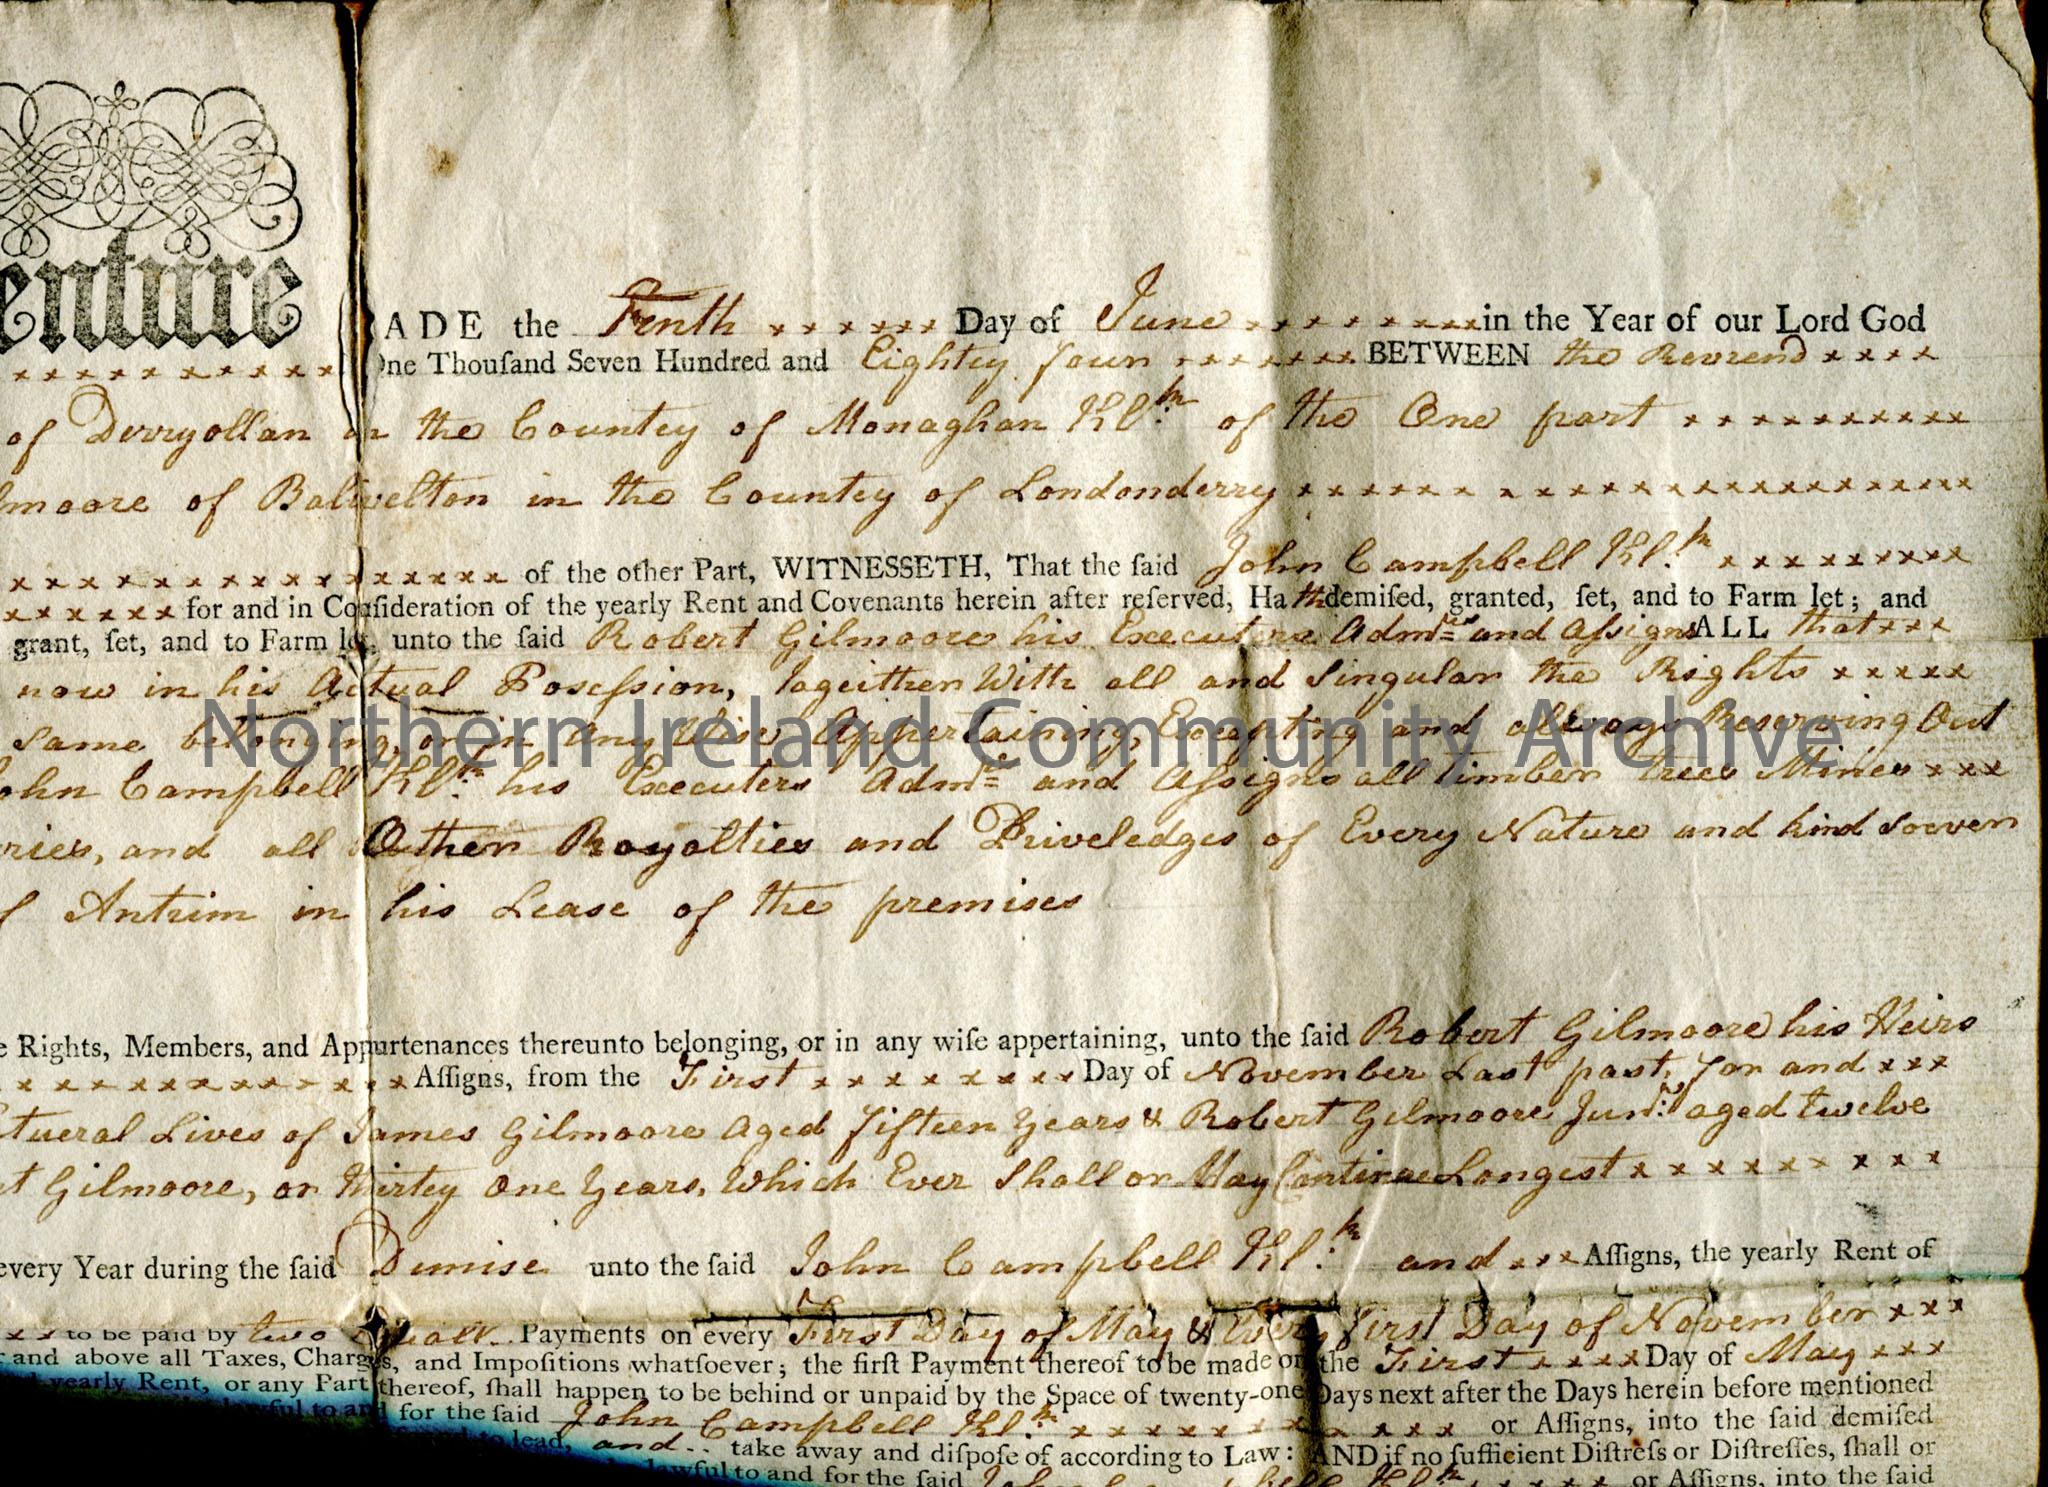 enture
ADE the Tenth x x x x x x Day of June x x x x x x x x x in the Year of our Lord God
x x x x x x x x x x x x One Thouſand Seven Hundred and Eightey four x x x x x x x BETWEEN the Revrend x x x x
of Derryollan in the Countey of Monaghan Kl:k of the One part x x x x x x x x x x
lmoore of Balivelton in the Countey of Londonderry x x x x x x x x x x x x x x x x x x x
x x x x x x x x x x x x x x x x x of the other Part, WITNESSETH, That the ſaid John Campbell Kl:k x x x x x x x x x
x x x x x x x for and in Conſideration of the yearly Rent and Covenants herein after reſerved, Hath demiſed, granted, ſet, and to Farm let; and
grant, ſet, and to Farm let, unto the ſaid Robert Gilmoore his Executers Admrs and Aſsigns ALL that x x x
now in his Actual Poseſsion, Togeither With all and Singular the Rights x x x x x
Same belonging, or in Any Wise Appertaining, Excepting and allways Reserving Out
ohn Campbell Kl:k his Executers Admrs and Aſsigns all timber trees Mines x x x
ries, and all Other Royalties and Priveledges of Every Nature and kind Soever
f Antrim in his Lease of the premises
e Rights, Members, and Appurtenances thereunto belonging, or in any wiſe appertaining, unto the ſaid Robert Gilmoore his Heirs
x x x x x x x x x x x x x Aſſigns, from the First x x x x x x x x x Day of November Last past, for and x x x
tueral Lives of James Gilmoore Aged fifteen Years & Robert Gilmoore Junr: aged twelve
t Gilmoore, or thirtey One Years, Which Ever Shall or May Continue Longest x x x x x x x x x x
every Year during the ſaid Dimise unto the ſaid John Campbell Kl:k and x x x Aſſigns, the yearly Rent of
x x x to be paid by two Equall Payments on every First Day of May & Every first Day of November x x x
and above all Taxes, Charges, and Impoſitions whatſoever; the firſt Payment thereof to be made on the First x x x x Day of May x x x
yearly Rent, or any Part thereof, ſhall happen to be behind or unpaid by the Space of twenty-one Days next after the Days herein before mentioned
lawful to and for the ſaid John Campbell Kl:k x x x x x x x x x x x x or Aſſigns, into the ſaid demiſed
to lead, and .. take away and diſpoſe of according to Law: AND if no ſufficient Diſtreſs or Diſtreſſes, ſhall or
lawful to and for the ſaid John Campbell Kl:k x x x x x or Aſſigns, into the ſaid
Northern Ireland Community Archive